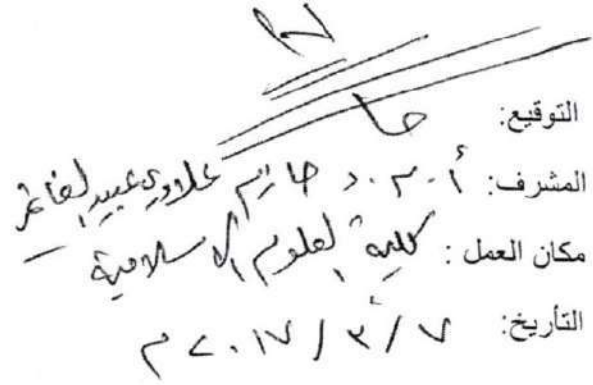 التوقيع:
المشرف: أ.م.د حازم علاوي عبيد الغانم
مكان العمل : كلية العلوم الاسلامية
التأريخ: ٧ / ٣ / ٢٠١٧ م